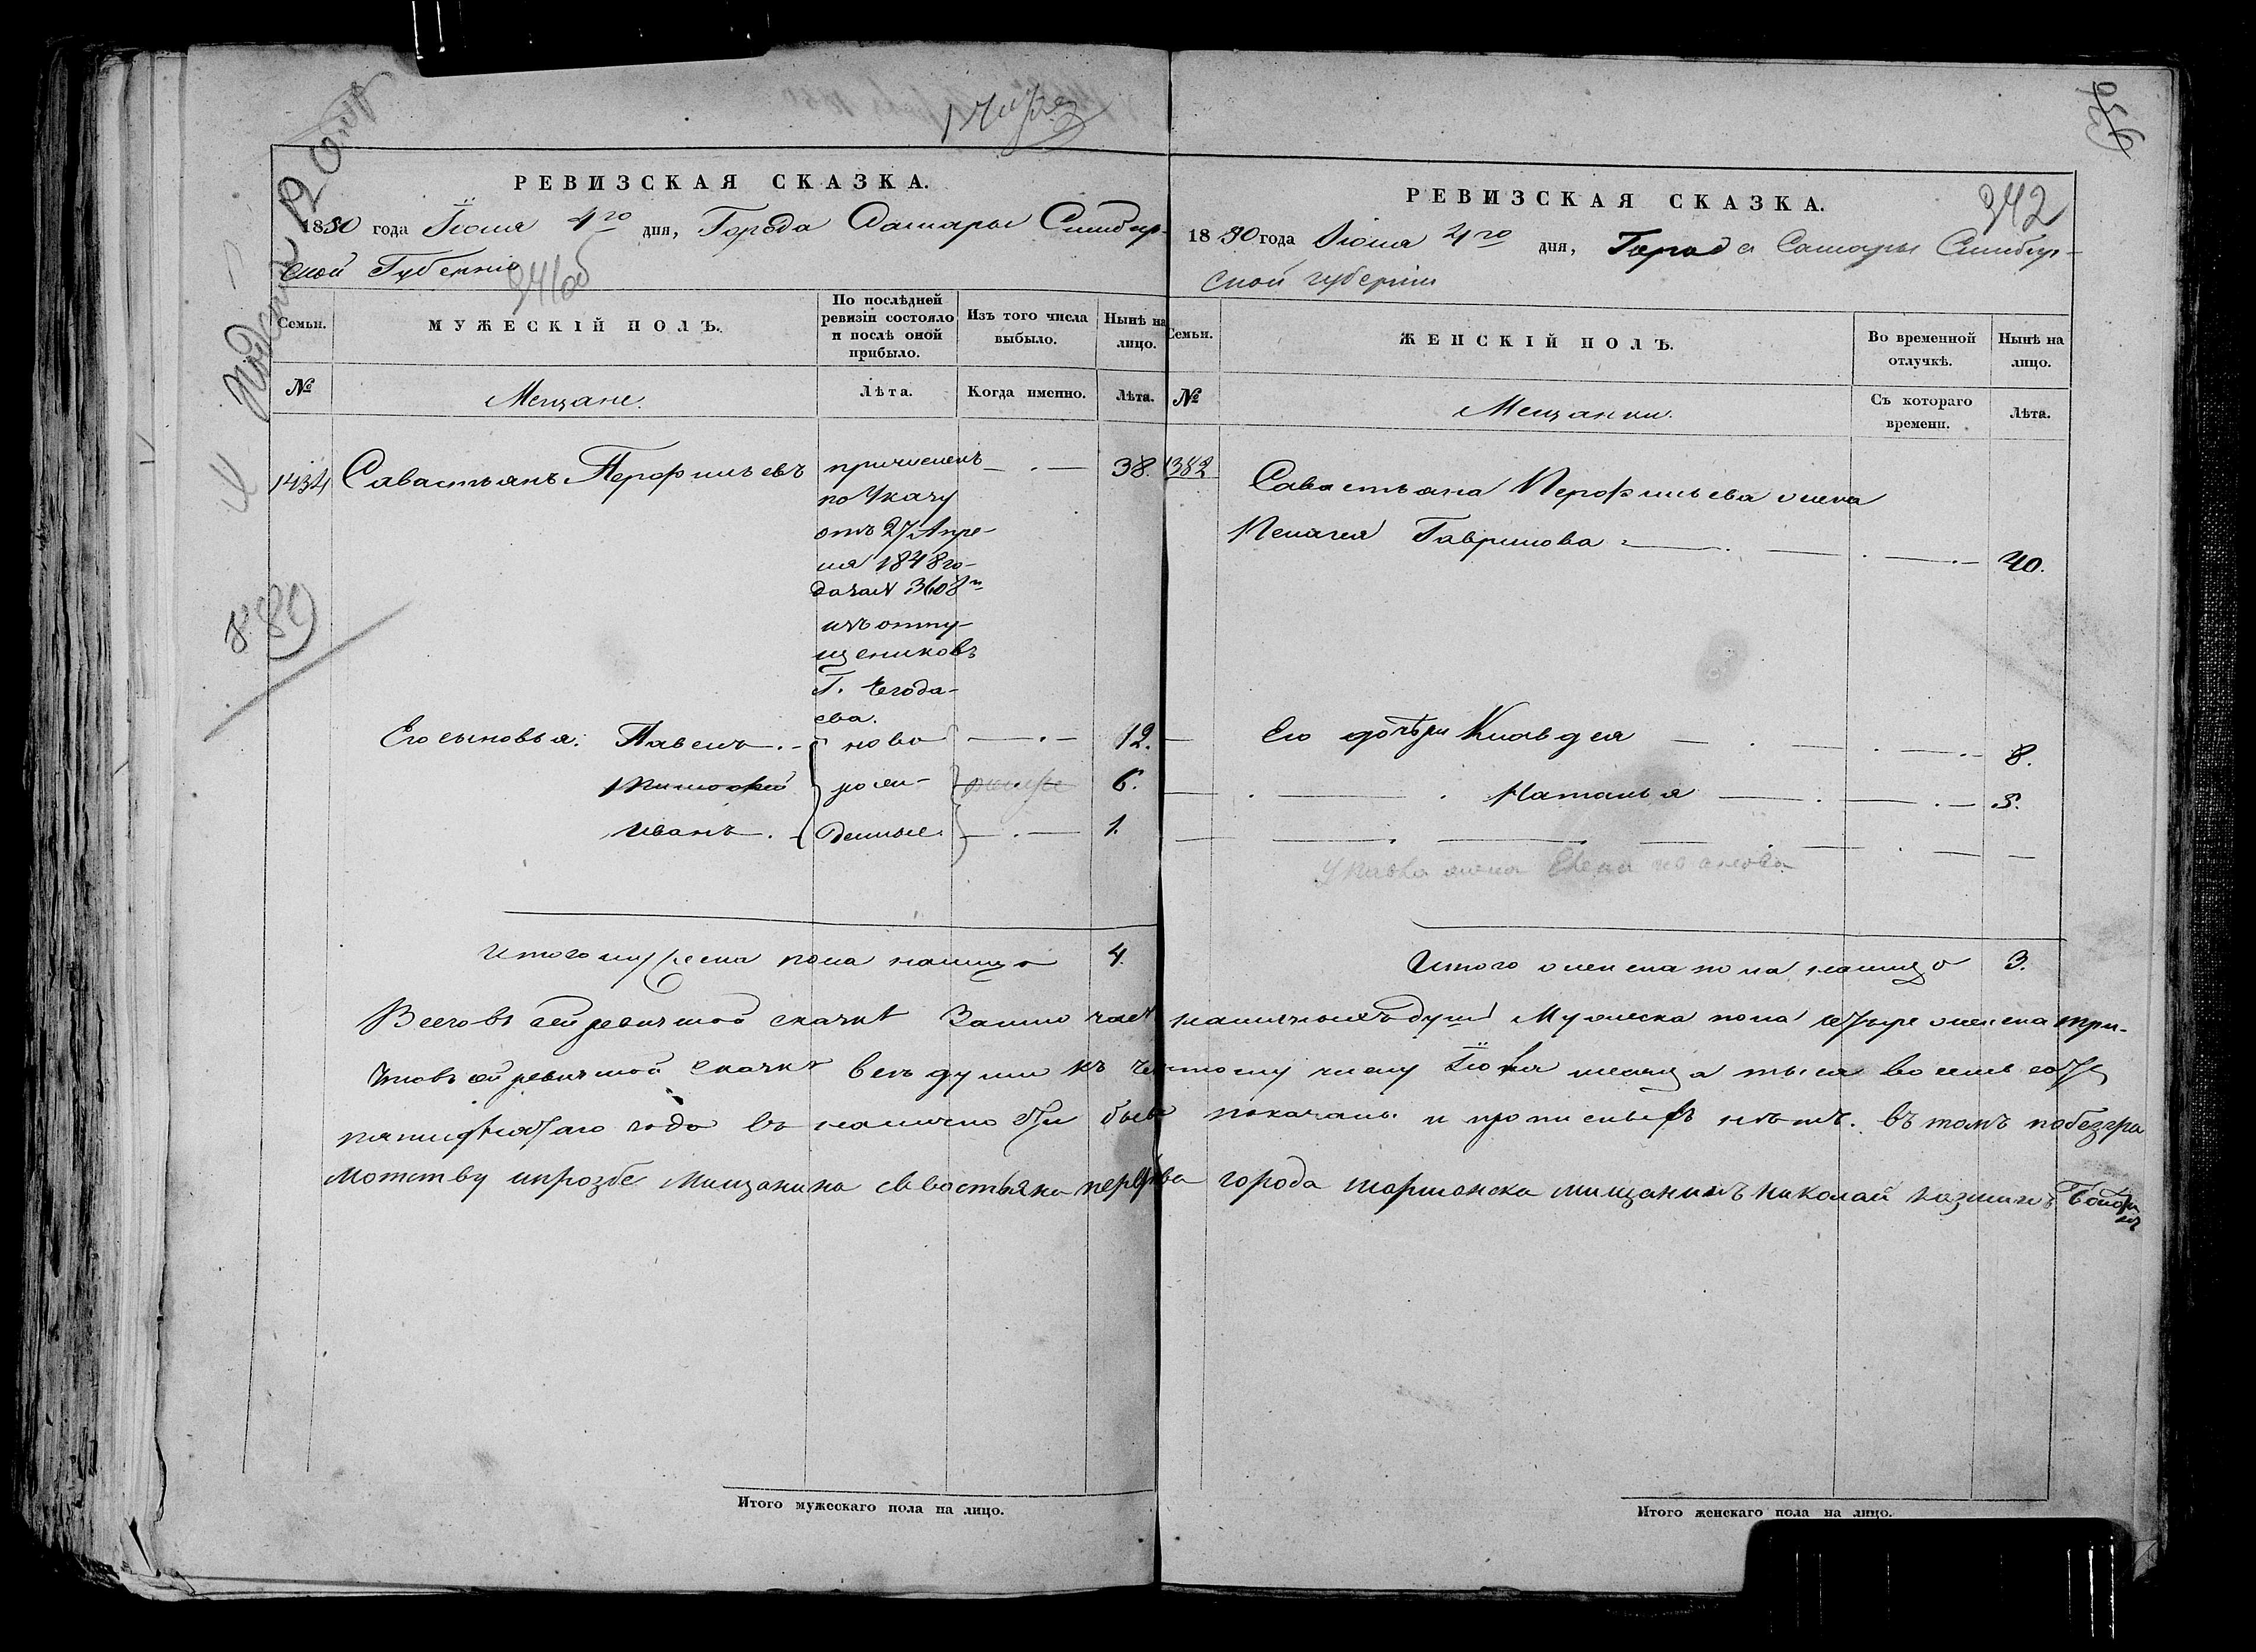 341 об
РЕВИЗСКАЯ СКАЗКА.
1850 года Іюня 4го дня, Города Самары Симбир-
ской Губерніи
Семьи.
МУЖЕСКІЙ ПОЛЪ.
По послѣдней ревизіи состояло и послѣ оной прибыло.
Изъ того числа выбыло.
Нынѣ на лицо.
№
Мещане.
Лѣта.
Когда именно.
Лѣта.
1434 Савастьянъ Перфильевъ причисленъ 38.
по Указу
отъ 27 Апре-
ля 1848 го-
да за № 3608м
изъ отпу-
щениковъ
Г. Чегода-
ева.
Его сыновья. Павелъ ново 12.
Тимофей рож- 6.
Иванъ денные. 1.
Итого мужеска пола налицо 4.
Итого мужескаго пола на лицо.
342
РЕВИЗСКАЯ СКАЗКА.
1850 года Іюня 4го дня, Города Самары Симбир-
ской губерніи
Семьи.
ЖЕНСКІЙ ПОЛЪ.
Во временной отлучкѣ.
Нынѣ на лицо.
№
Мещанки.
Съ котораго времени.
Лѣта.
1382 Савастьяна Перфильева жена
Пелагея Гаврилова 40.
Его дочѣри Клавдея 8.
Наталья 5.
У Павла жена Елена
Итого женска пола налицо 3.
Всего въ сей ревизкой сказкѣ Заключаетъ наличныхъ душъ Мужеска пола четыре женска три.
Что въ сей ревизкой сказкѣ все души къ честому числу Іюня месяца тысяча восемь сотъ
пятидесятаго года въ налично сти бывъ показаны и прописныхъ нѣтъ. въ томъ по безгра
мотству ипрозбе Мищанина Савостьяна города мищанинъ николай
Итого женскаго пола на лицо.